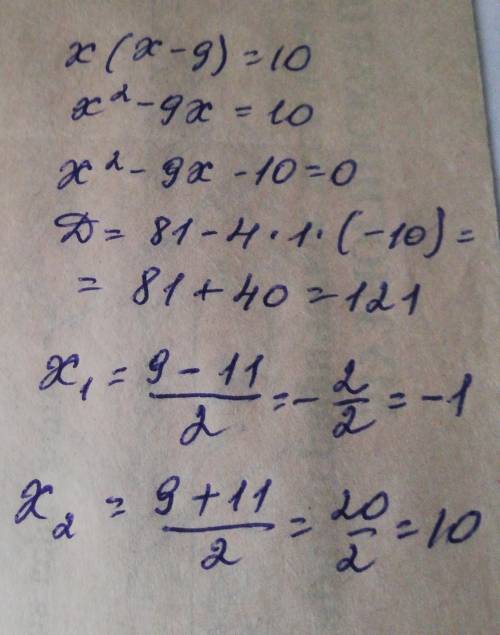 x(x-9)=10
x²-9x=10
x²-9x-10=0
D=81-4·1·(-10)=
=81+40=121
x₁=(9-11)/2=-2/2=-1
x₂=(9+11)/2=20/2=10